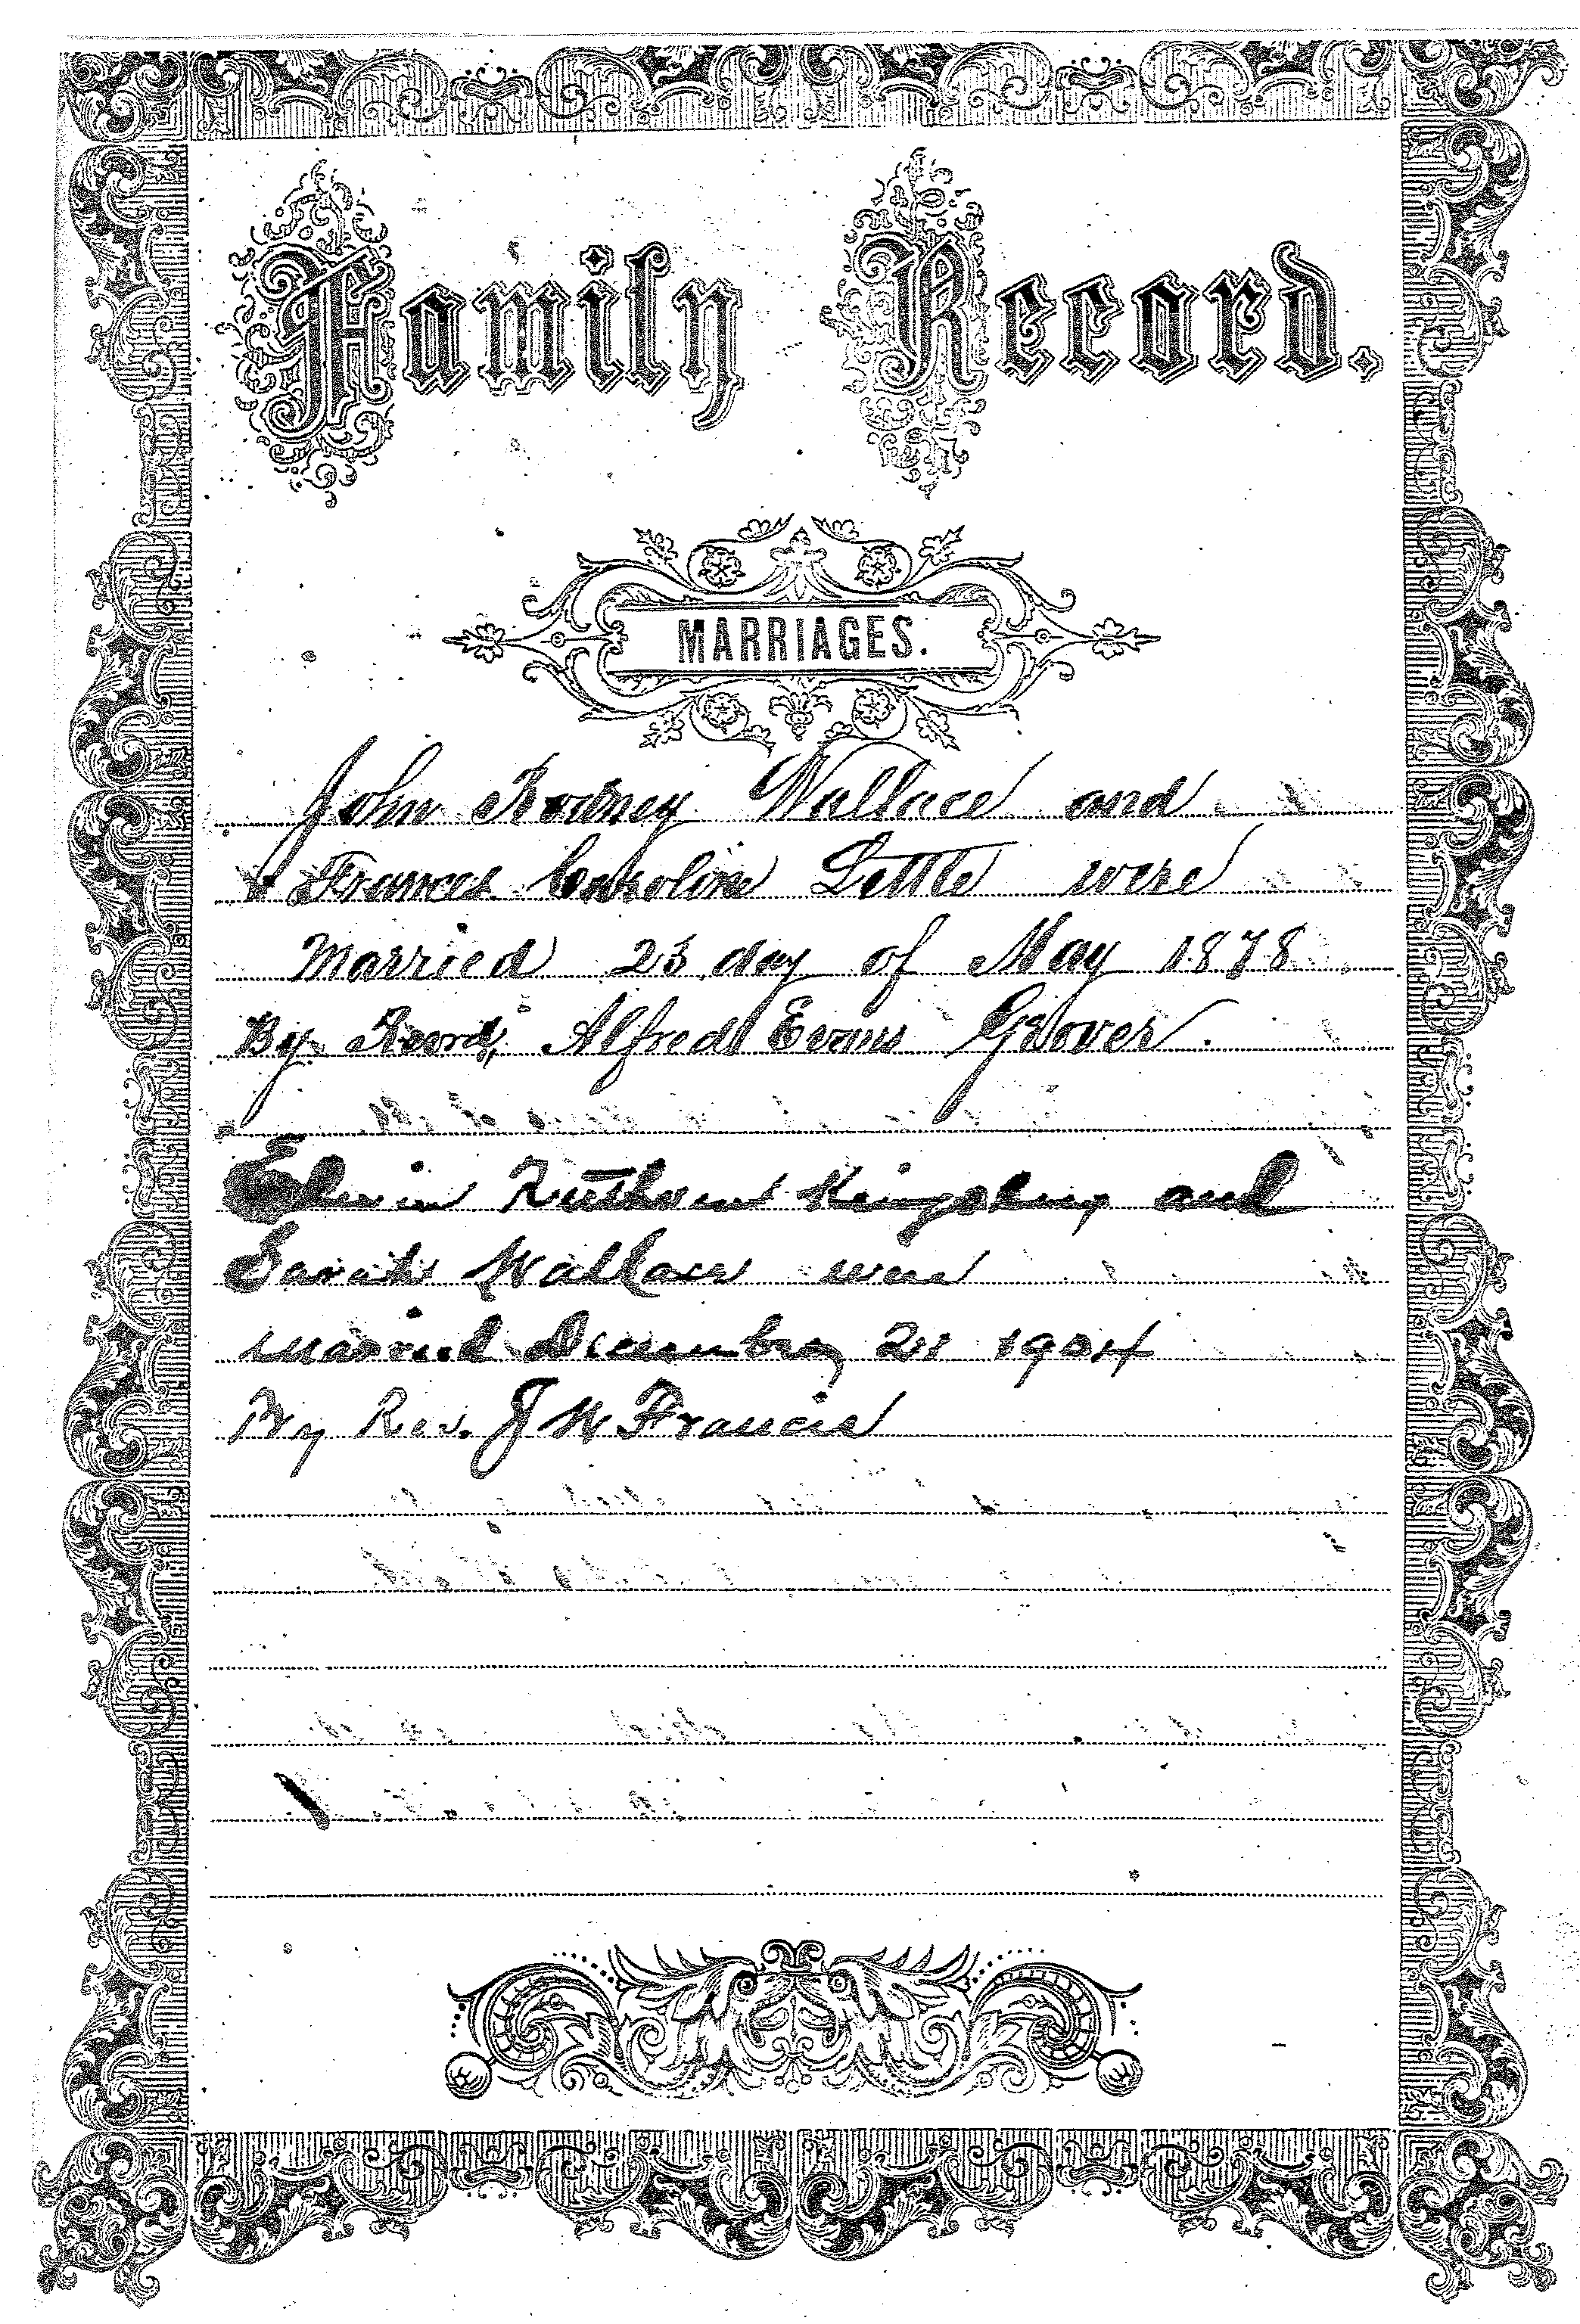 Family Record.
MARRIAGES.
John Rodney Wallace and
Frances Caroline Little were
Married 23 day of May 1878
By Revrd, Alfred Evans Glover.
Edwin Ruthvent Kingsbury and
Sarah Wallace were
married December 21 1904
By Rev. J W Francis